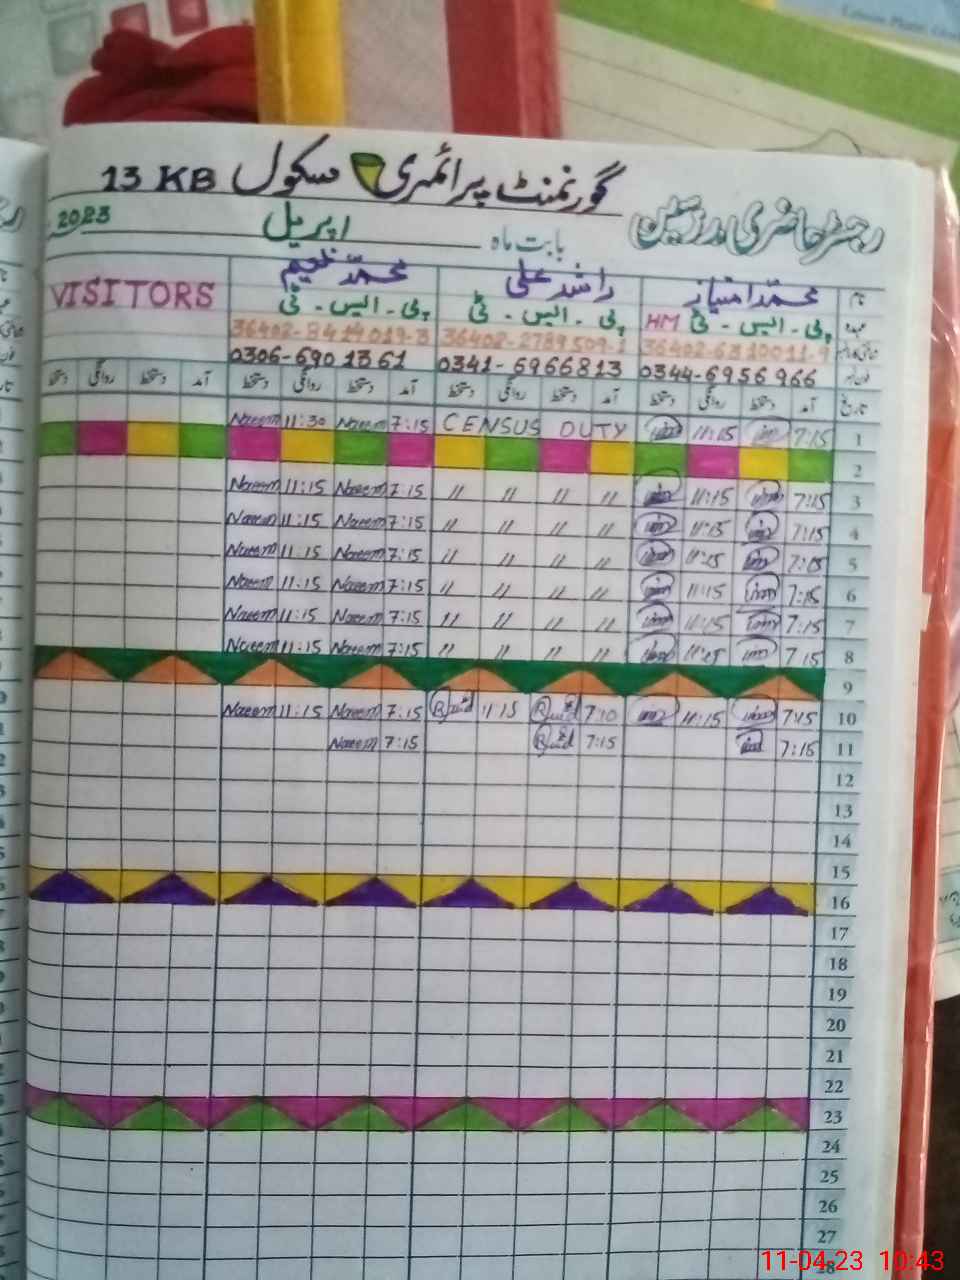 گورنمنٹ پرائمری سکول 13 KB
رجسٹر حاضری مدرسین بابت ماہ اپریل 2023
نام محمد امتیاز راشد علی محمد نعیم VISITORS
عہدہ پی۔ایس۔ٹی HM پی۔ایس۔ٹی پی۔ایس۔ٹی
36402-6310011-9 36402-2789509-1 36402-8414019-3
0344-6956966 0341-6966813 0306-6901361
تاریخ آمد دستخط روانگی دستخط آمد دستخط روانگی دستخط آمد دستخط روانگی دستخط آمد دستخط روانگی دستخط
1 7:15 11:15 CENSUS DUTY 7:15 Naeem 11:30 Naeem
2
3 7:15 11:15 〃 〃 〃 〃 7:15 Naeem 11:15 Naeem
4 7:15 11:15 〃 〃 〃 〃 7:15 Naeem 11:15 Naeem
5 7:15 11:15 〃 〃 〃 〃 7:15 Naeem 11:15 Naeem
6 7:15 11:15 〃 〃 〃 〃 7:15 Naeem 11:15 Naeem
7 7:15 11:15 〃 〃 〃 〃 7:15 Naeem 11:15 Naeem
8 7:15 11:15 〃 〃 〃 〃 7:15 Naeem 11:15 Naeem
9
10 7:15 11:15 7:10 11:15 7:15 Naeem 11:15 Naeem
11 7:15 7:15 7:15 Naeem
12
13
14
15
16
17
18
19
20
21
22
23
24
25
26
27
28
11-04-23 10:43